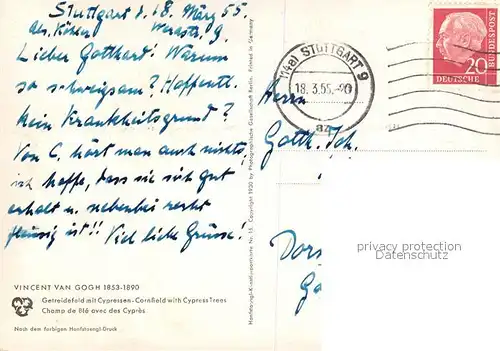 Stuttgart d. 18. März 55.
Werastr. 9.
Lieber Gotthard! Warum
so schweigsam? Hoffentl.
kein Krankheitsgrund?
Von C. hört man auch nichts,
ich hoffe, dass sie sich gut
erholt u. nebenbei recht
fleissig ist!! Viel liebe Grüsse!
VINCENT VAN GOGH 1853-1890
Getreidefeld mit Cypressen - Cornfield with Cypress Trees
Champ de Blé avec des Cyprès
Nach dem farbigen Hanfstaengl-Druck
Hanfstaengl-Künstlerpostkarte Nr. 15. Copyright 1930 by Photographische Gesellschaft Berlin. Printed in Germany
(14a) STUTTGART 9
18.3.55.-20
az
20
DEUTSCHE
BUNDESPOST
Herrn
Gotth. Joh.
privacy protection
Datenschutz